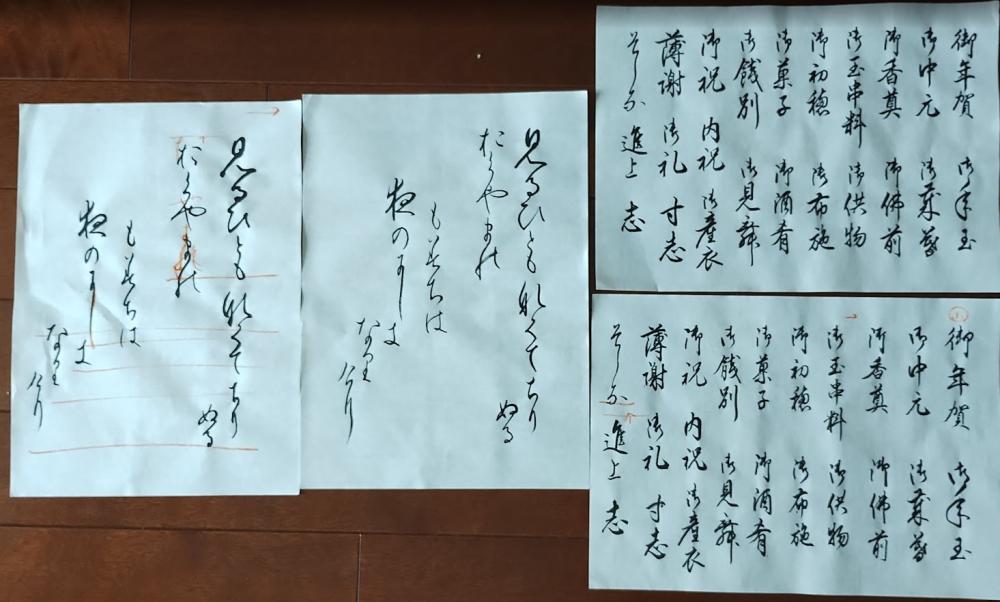 御年賀 御年玉
御中元 御歳暮
御香奠 御佛前
御玉串料 御供物
御初穂 御布施
御菓子 御酒肴
御餞別 御見舞
御祝 内祝 御産衣
薄謝 御礼 寸志
そしな 進上 志
御年賀 御年玉
御中元 御歳暮
御香奠 御佛前
御玉串料 御供物
御初穂 御布施
御菓子 御酒肴
御餞別 御見舞
御祝 内祝 御産衣
薄謝 御礼 寸志
そしな 進上 志
見るひともなくてちり
ぬる
おくやまの
もみちは
夜のにしき
なり
けり
見るひともなくてちり
ぬる
おくやまの
もみちは
夜のにしき
なり
けり